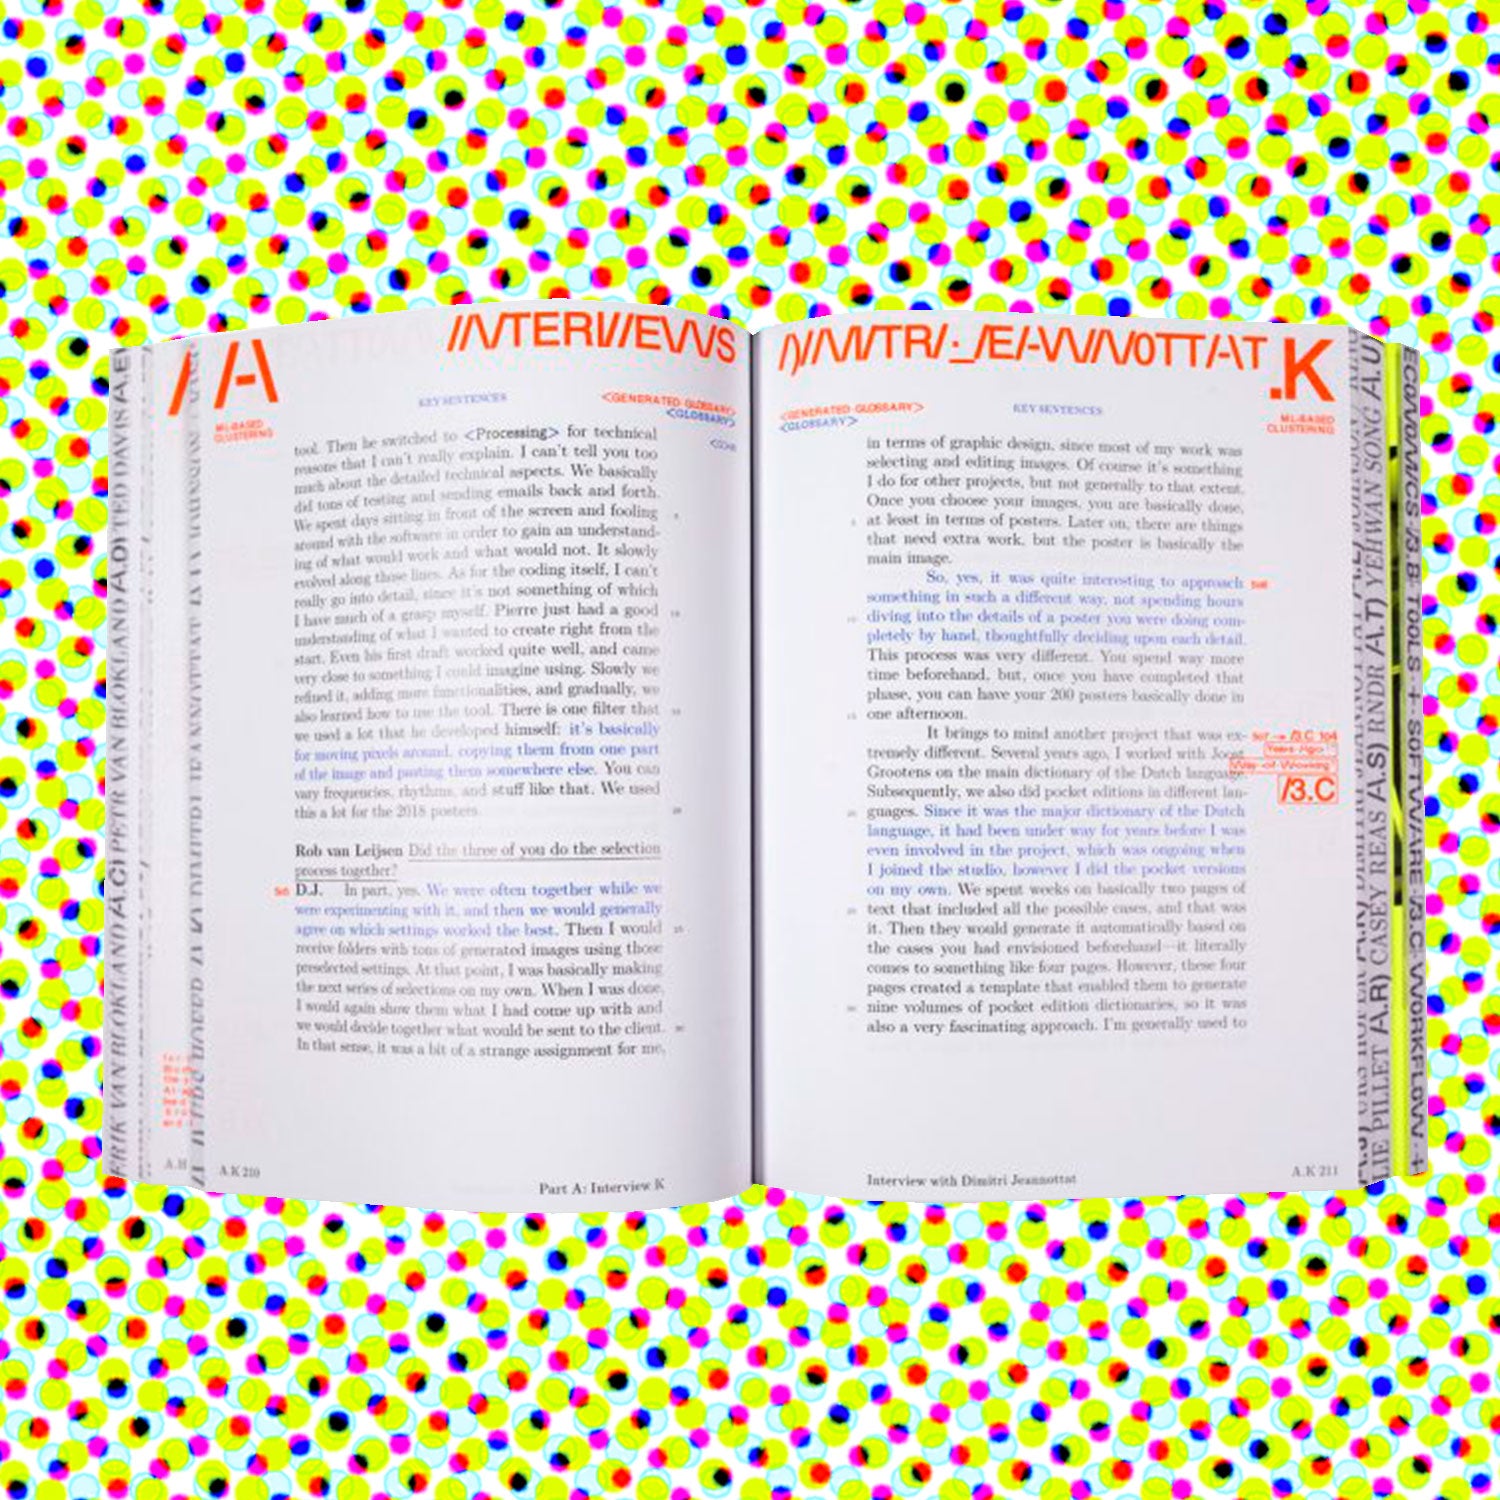 /A
INTERVIEWS
ML-BASED
CLUSTERING
KEY SENTENCES
<GENERATED GLOSSARY>
<GLOSSARY>
tool. Then he switched to <Processing> for technical
reasons that I can't really explain. I can't tell you too
much about the detailed technical aspects. We basically
did tons of testing and sending emails back and forth.
We spent days sitting in front of the screen and fooling
around with the software in order to gain an understand-
ing of what would work and what would not. It slowly
evolved along those lines. As for the coding itself, I can't
really go into detail, since it's not something of which
I have much of a grasp myself. Pierre just had a good
understanding of what I wanted to create right from the
start. Even his first draft worked quite well, and came
very close to something I could imagine using. Slowly we
refined it, adding more functionalities, and gradually, we
also learned how to use the tool. There is one filter that
we used a lot that he developed himself: it's basically
for moving pixels around, copying them from one part
of the image and pasting them somewhere else. You can
vary frequencies, rhythms, and stuff like that. We used
this a lot for the 2018 posters.
Rob van Leijsen Did the three of you do the selection
process together?
D.J. In part, yes. We were often together while we
were experimenting with it, and then we would generally
agree on which settings worked the best. Then I would
receive folders with tons of generated images using those
preselected settings. At that point, I was basically making
the next series of selections on my own. When I was done,
I would again show them what I had come up with and
we would decide together what would be sent to the client.
In that sense, it was a bit of a strange assignment for me,
A.K 210
Part A: Interview K
DIMITRI JEANNOTTAT
.K
<GENERATED GLOSSARY>
<GLOSSARY>
KEY SENTENCES
ML-BASED
CLUSTERING
in terms of graphic design, since most of my work was
selecting and editing images. Of course it's something
I do for other projects, but not generally to that extent.
Once you choose your images, you are basically done,
at least in terms of posters. Later on, there are things
that need extra work, but the poster is basically the
main image.
So, yes, it was quite interesting to approach
something in such a different way, not spending hours
diving into the details of a poster you were doing com-
pletely by hand, thoughtfully deciding upon each detail.
This process was very different. You spend way more
time beforehand, but, once you have completed that
phase, you can have your 200 posters basically done in
one afternoon.
It brings to mind another project that was ex-
tremely different. Several years ago, I worked with Joost
Grootens on the main dictionary of the Dutch language.
Subsequently, we also did pocket editions in different lan-
guages. Since it was the major dictionary of the Dutch
language, it had been under way for years before I was
even involved in the project, which was ongoing when
I joined the studio, however I did the pocket versions
on my own. We spent weeks on basically two pages of
text that included all the possible cases, and that was
it. Then they would generate it automatically based on
the cases you had envisioned beforehand—it literally
comes to something like four pages. However, these four
pages created a template that enabled them to generate
nine volumes of pocket edition dictionaries, so it was
also a very fascinating approach. I'm generally used to
Years Ago
Way of Working
/3.C
Interview with Dimitri Jeannottat
A.K 211
ERIK VAN BLOKLAND A.C) PETR VAN BLOKLAND A.D) TED DAVIS A.E)
PILLET A.R) CASEY REAS A.S) RNDR A.T) YEHWAN SONG A.U)
ECONOMICS /3.B TOOLS + SOFTWARE /3.C WORKFLOW +